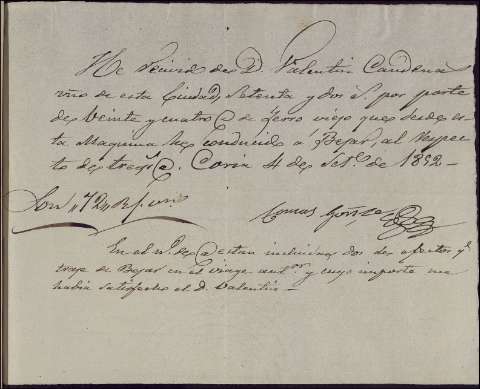 He recivido de D. Valentin Cardena
vno de esta Ciudad, Setenta y dos rs. por porte
de Veinte y cuatro @ de fierro viejo que desde es-
ta Maquina he conducido á Bejar, al respec-
to de tres rs. @. Coria 4 de Set.e de 1852-
Son ,,72,, Rs. vn.
Tomas Gonzalez
En el n.º de @ estan incluidas dos de efectos q.e
traje de Bejar en el viage ant.or y cuyo importe me
habia satisfecho el D. Valentin-